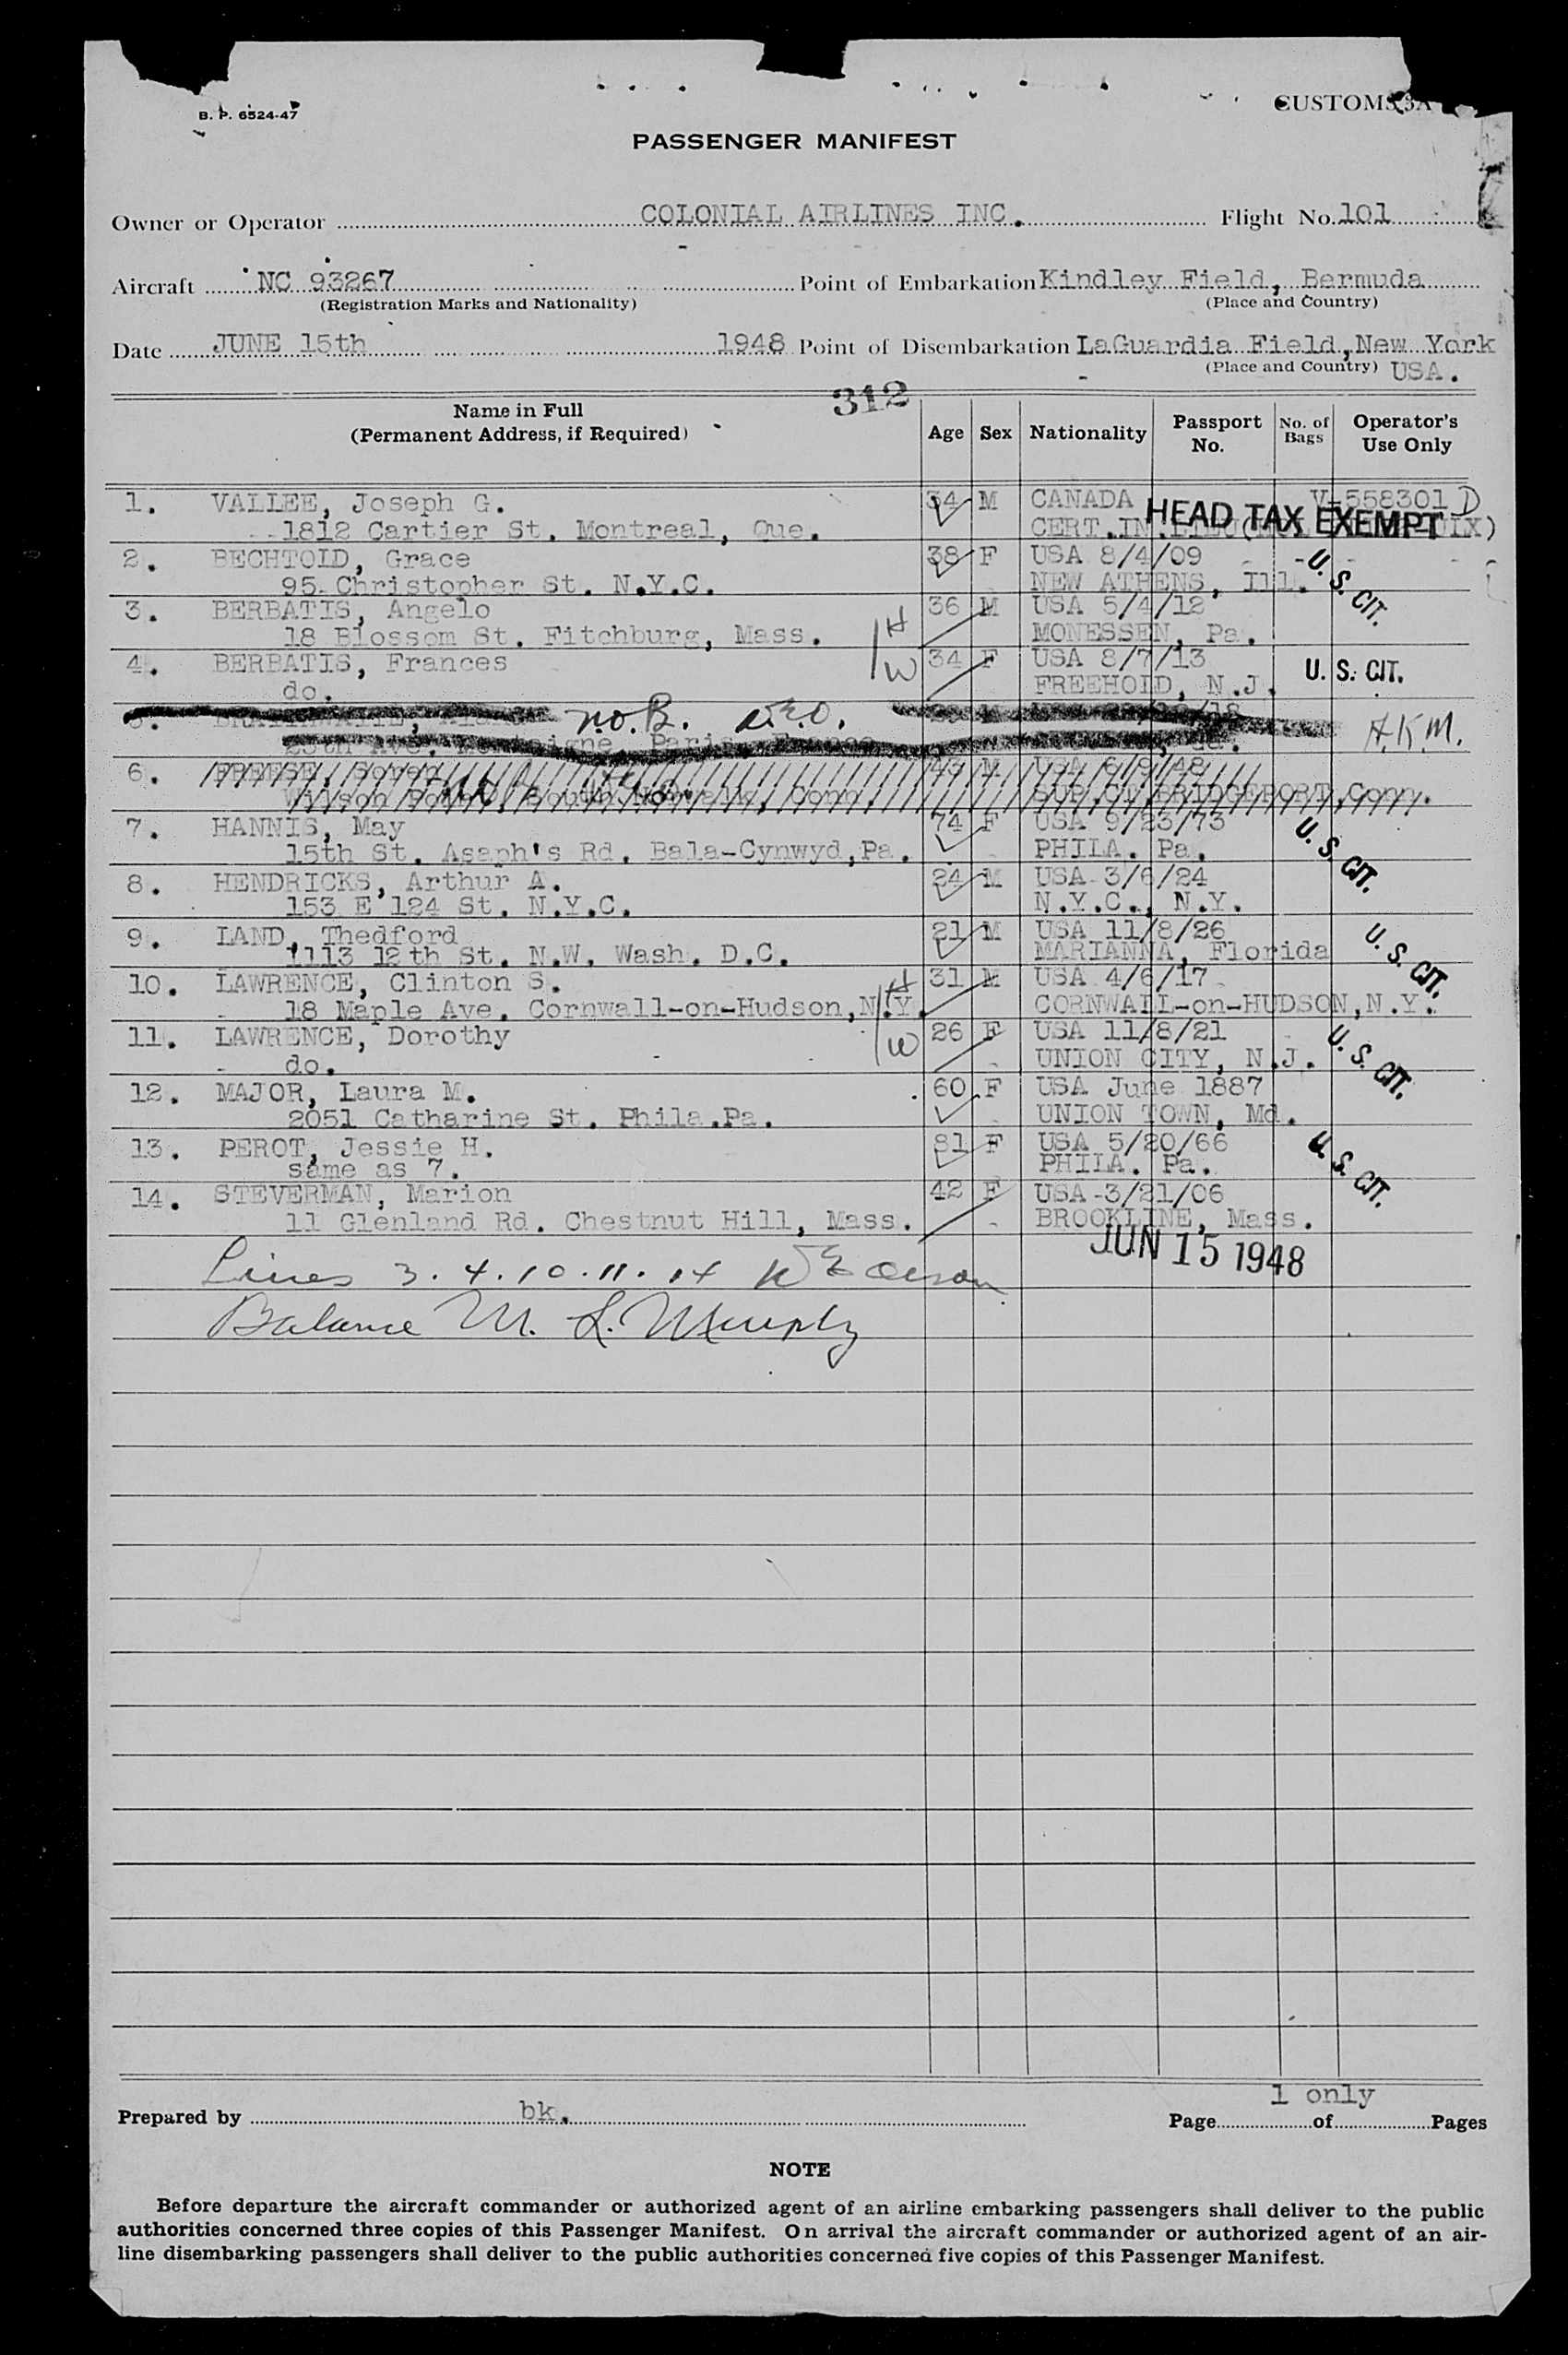 B. P. 6524-47
CUSTOMS 3A
PASSENGER MANIFEST
Owner or Operator COLONIAL AIRLINES INC. Flight No. 101
Aircraft NC 93267 Point of Embarkation Kindley Field, Bermuda
(Registration Marks and Nationality) (Place and Country)
Date JUNE 15th 1948 Point of Disembarkation LaGuardia Field, New York
(Place and Country) USA.
312
Name in Full
(Permanent Address, if Required)
Age Sex Nationality Passport No. No. of Bags Operator's Use Only
1. VALLEE, Joseph G. 34 M CANADA V-558301 D
1812 Cartier St. Montreal, Que. CERT. IN LIEU
HEAD TAX EXEMPT
2. BECHTOLD, Grace 38 F USA 8/4/09
95 Christopher St. N.Y.C. NEW ATHENS, Ill. U. S. CIT.
3. BERBATIS, Angelo H 36 M USA 5/4/12
18 Blossom St. Fitchburg, Mass. MONESSEN, Pa.
4. BERBATIS, Frances W 34 F USA 8/7/13 U. S. CIT.
do. FREEHOLD, N.J.
5. n.o.B. W.E.O. A.K.M.
Paris, France
6. FREESE, 43 M USA 6/9/48
Wilson Point, South Norwalk, Conn. SUP. CT. BRIDGEPORT, Conn.
7. HANNIS, May 74 F USA 9/23/73
15th St. Asaph's Rd. Bala-Cynwyd, Pa. PHILA. Pa. U. S. CIT.
8. HENDRICKS, Arthur A. 24 M USA 3/6/24
153 E 124 St. N.Y.C. N.Y.C., N.Y.
9. LAND, Thedford 21 M USA 11/8/26
1113 12th St. N.W. Wash. D.C. MARIANNA, Florida U. S. CIT.
10. LAWRENCE, Clinton S. H 31 M USA 4/6/17
18 Maple Ave. Cornwall-on-Hudson, N.Y. CORNWALL-on-HUDSON, N.Y.
11. LAWRENCE, Dorothy W 26 F USA 11/8/21
do. UNION CITY, N.J. U. S. CIT.
12. MAJOR, Laura M. 60 F USA June 1887
2051 Catharine St. Phila. Pa. UNION TOWN, Md.
13. PEROT, Jessie H. 81 F USA 5/20/66
same as 7. PHILA. Pa. U. S. CIT.
14. STEVERMAN, Marion 42 F USA 3/21/06
11 Glenland Rd. Chestnut Hill, Mass. BROOKLINE, Mass.
JUN 15 1948
Lines 3. 4. 10. 11. 14 W E Olson
Balance M. L. Murphy
1 only
Prepared by bk. Page of Pages
NOTE
Before departure the aircraft commander or authorized agent of an airline embarking passengers shall deliver to the public
authorities concerned three copies of this Passenger Manifest. On arrival the aircraft commander or authorized agent of an air-
line disembarking passengers shall deliver to the public authorities concerned five copies of this Passenger Manifest.